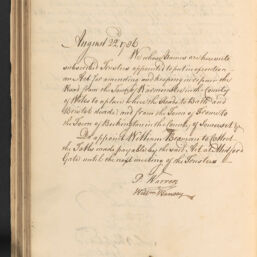 August 22, 1786
We whose Names are hereunto
subscribed Trustees appointed to put in execution
an Act for amending and keeping in repair the
Road from the Turnpike Warminster in the County
of Wilts to a place where the Roads to Bath and
Bristol divide and from the Town of Frome to
the Town of Beckington in the County of Somerset &c
Do appoint William Beavan to collect
the Tolls made payable by the said Act at
Gate until the next meeting of the Trustees
P Warren
Wm